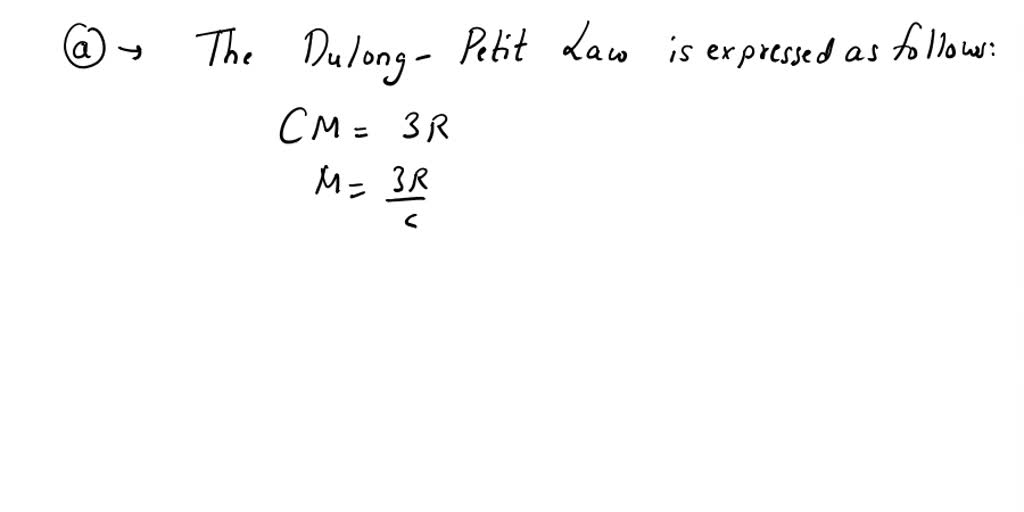 ⓐ → The Dulong - Petit Law is expressed as follows:
CM = 3R
M = 3R
c